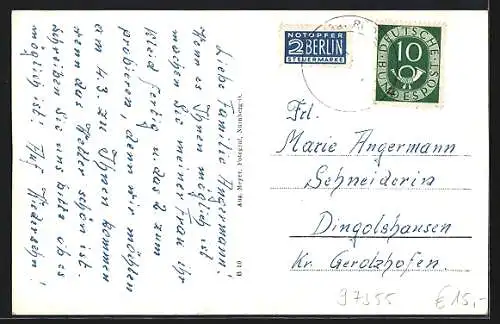 Liebe Familie Angermann!
Wenn es Ihnen möglich ist
machen Sie meiner Frau ihr
Kleid fertig u. das 2 zum
probieren, denn wir möchten
am 4.3. zu Ihnen kommen
denn das Wetter schön ist.
Schreiben Sie uns bitte ob es
möglich ist. Auf Wiedersehn!
Aug. Meyer, Fotograf, Nürnberg-O.
B 10
NOTOPFER
2 BERLIN
STEUERMARKE
DEUTSCHE BUNDESPOST
10
Frl.
Marie Angermann
Schneiderin
Dingolshausen
Kr. Gerolzhofen.
97355
€15,-